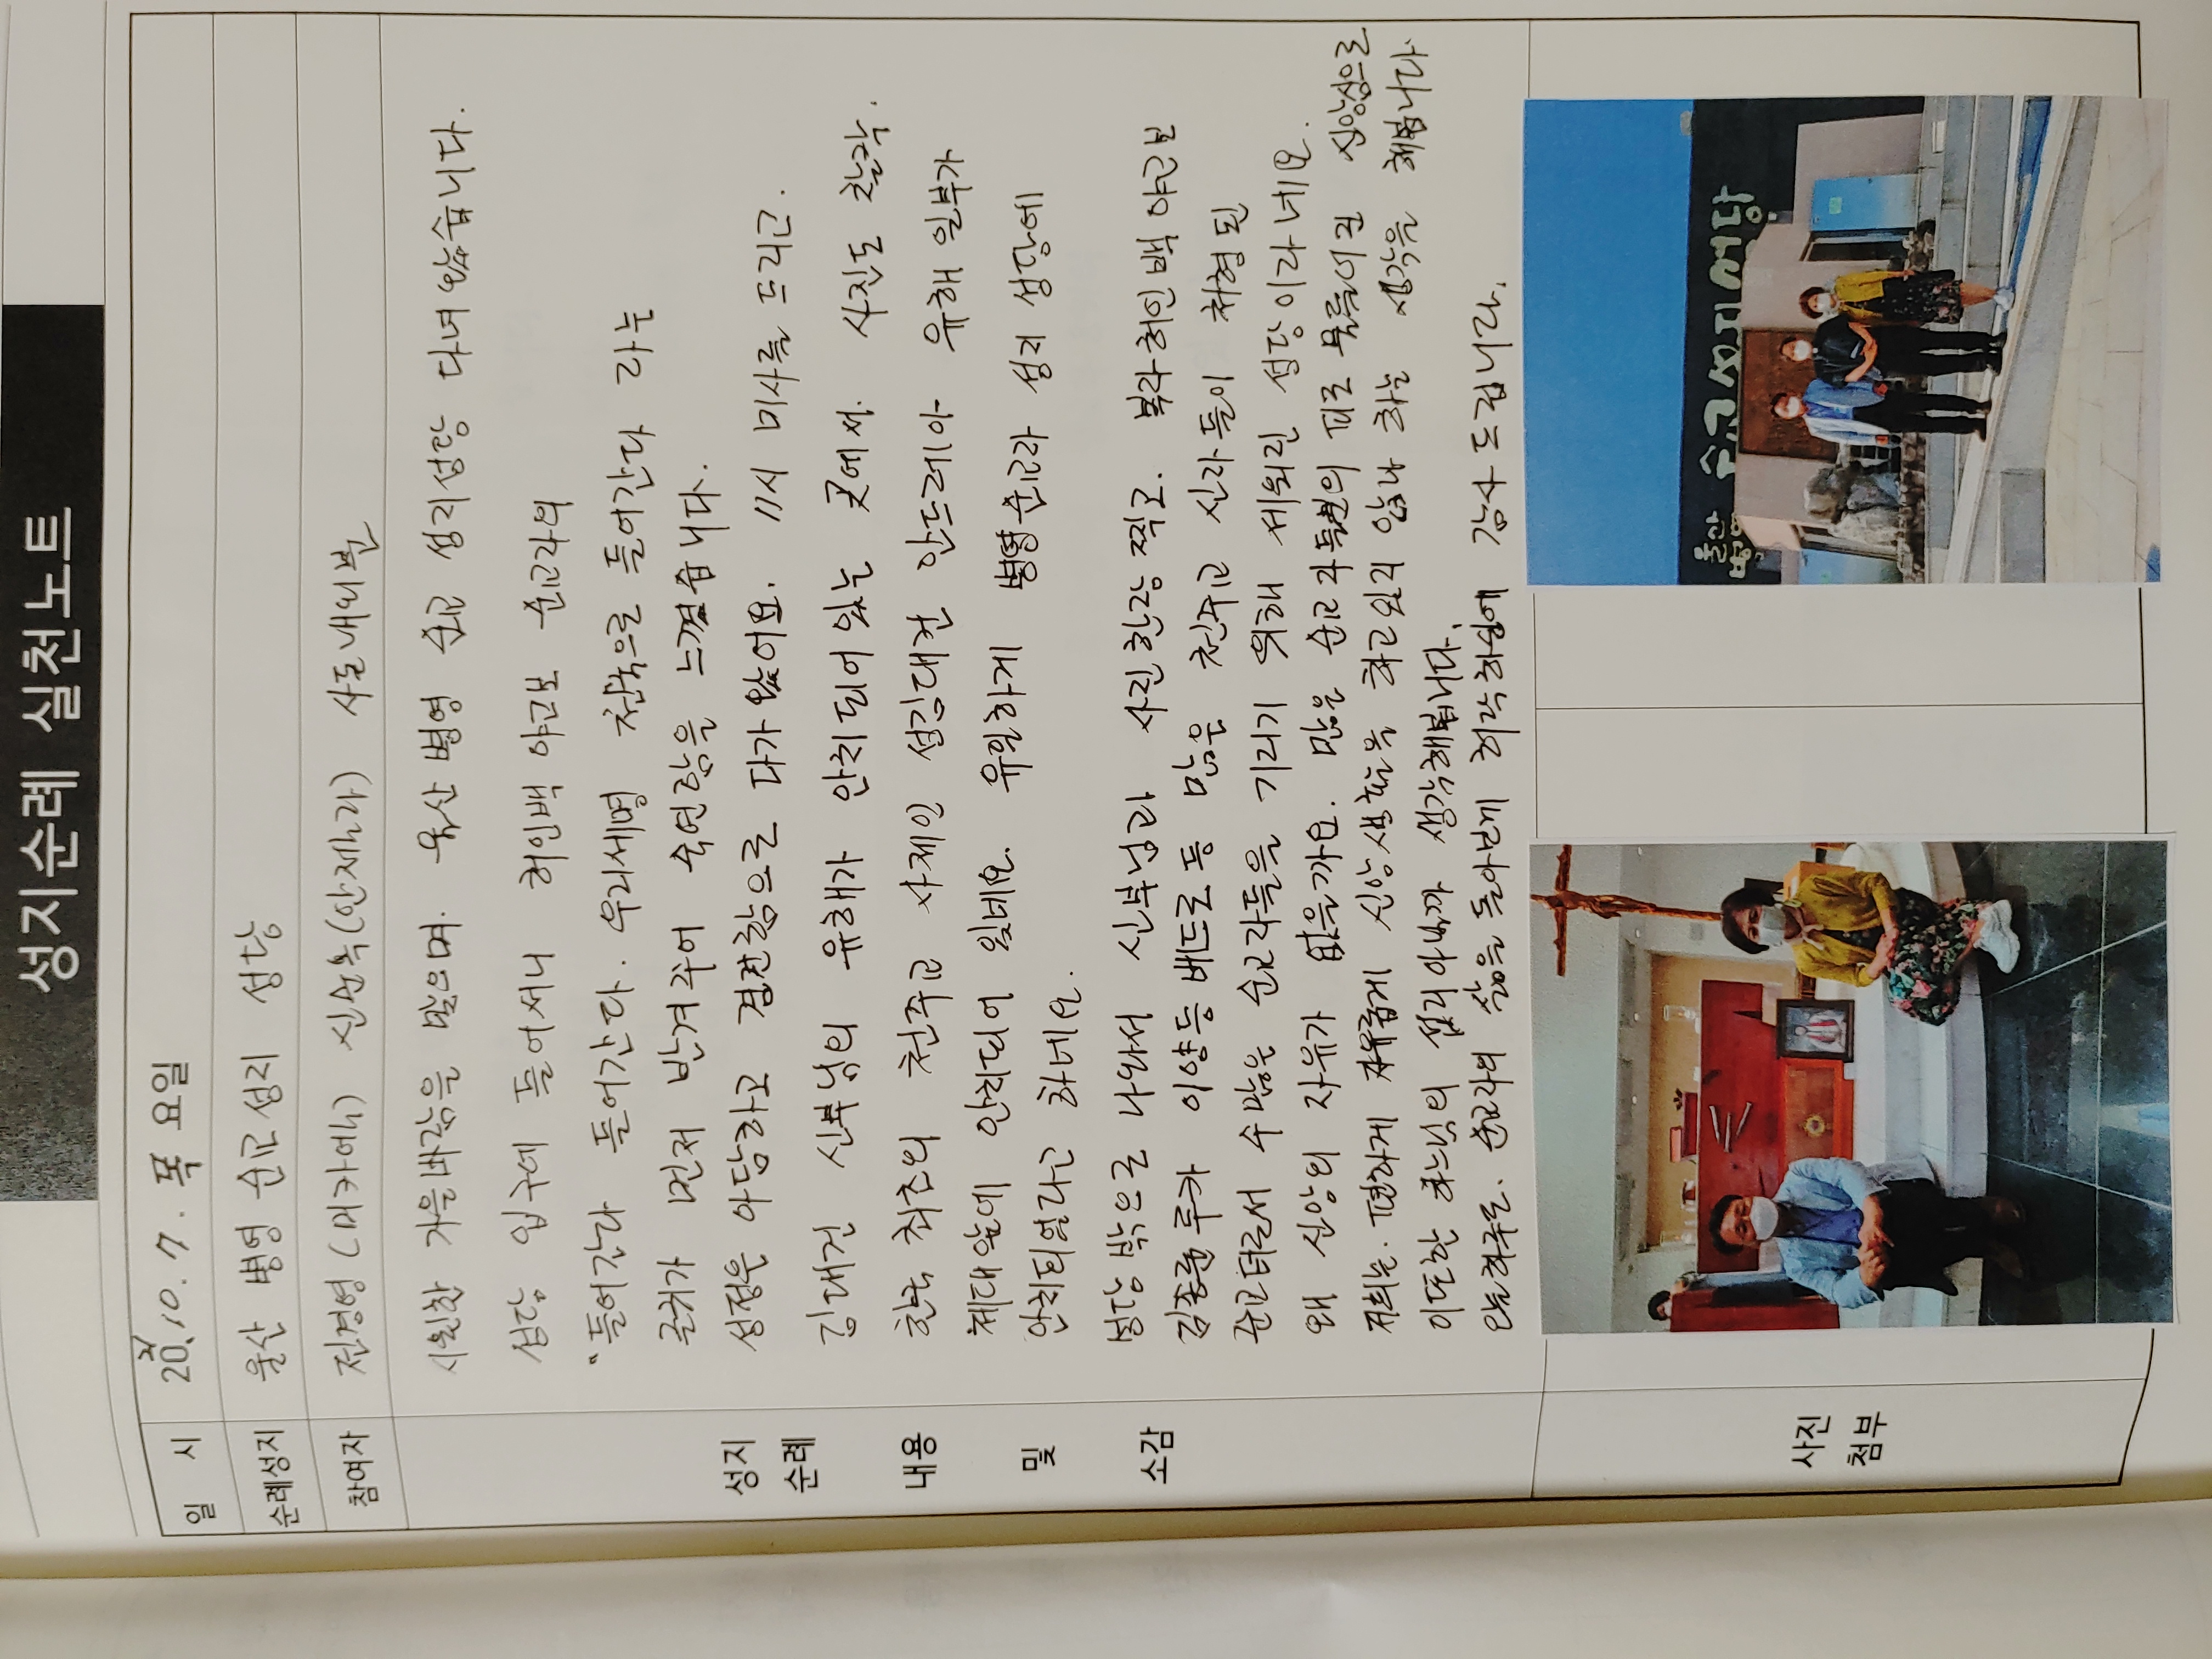 성지순례 실천노트
일 시
2021.10.7. 목요일
순례성지
울산 병영 순교성지 성당
참여자
전경영(미카엘) 신순옥(안젤라) 사돈내외분
성지
순례
내용
및
소감
시원한 가을바람을 맞으며. 울산병영 순교 성지성당 다녀왔습니다.
성당 입구에 들어서니 허인백 야고보 순교자의
"들어간다 들어간다. 우리세명 천국으로 들어간다 라는
글귀가 먼저 반겨주어 숙연함을 느꼈습니다.
성정은 아담하고 경건함으로 다가왔어요. 11시 미사를 드리고.
김대건 신부님의 유해가 안치되어있는 곳에서. 사진도 찰칵.
한국 최초의 천주교 사제인 성김대건 안드레아 유해 일부가
제대앞에 안치되어 있네요. 유일하게 병영순교자 성지 성당에
안치되었다고 하네요.
성당밖으로 나와서 신부님과 사진한장 찍고. 복자허인백 야고보
김종륜루카 이양등베드로 등 많은 천주교 신자들이 처형된
순교터로서 수많은 순교자들을 기리기 위해 세워진 성당이라네요.
왜 신앙의 자유가 없을까요. 많은 순교자들분의 피로 물들여진 신앙심으로
저희는. 편하게 자유롭게 신앙생활을 하고있지 않나 하는 생각을 해봅니다.
이또한 하느님의 섭리아닐까 생각해봅니다.
오늘하루도. 순교자의 삶을 돌아보게 허락하심에 감사드립니다.
사진
첨부
울산
병영 순교성지성당